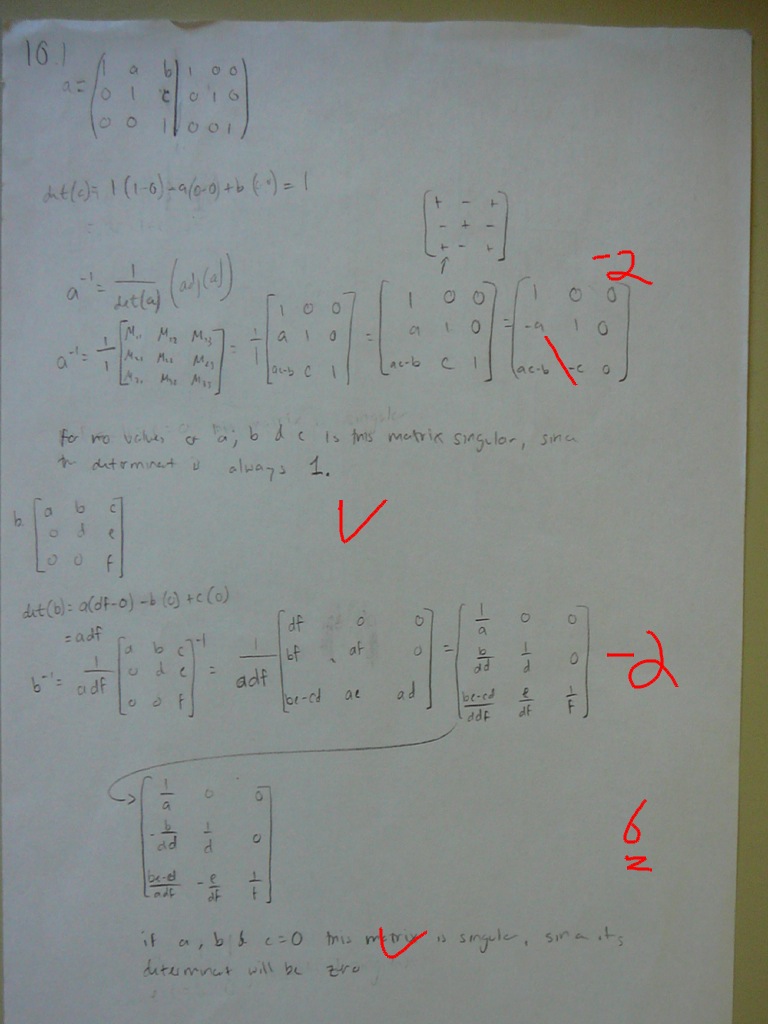 10.1
a = ( 1 a b | 1 0 0
0 1 c | 0 1 0
0 0 1 | 0 0 1 )
det(c) = 1(1-0) - a(0-0) + b( ) = 1
[ + - +
- + -
+ - + ]
↑
-2
a⁻¹ = 1/det(a) (adj(a))
a⁻¹ = 1/1 [ M₁₁ M₁₂ M₁₃ ; M₂₁ M₂₂ M₂₃ ; M₃₁ M₃₂ M₃₃ ] = 1/1 [ 1 0 0 ; a 1 0 ; ac-b c 1 ] = [ 1 0 0 ; a 1 0 ; ac-b c 1 ] = ( 1 0 0 ; -a 1 0 ; ac-b -c 0 )
for no values of a, b & c is this matrix singular, since
the determinent is always 1.
b. [ a b c
0 d e
0 0 f ]
det(b) = a(df-0) - b(0) + c(0)
= adf
b⁻¹ = 1/adf [ a b c ; 0 d e ; 0 0 f ]⁻¹ = 1/adf [ df 0 0 ; bf af 0 ; be-cd ae ad ] = [ 1/a 0 0 ; b/ad 1/d 0 ; be-cd/adf e/df 1/f ] -2
[ 1/a 0 0
-b/ad 1/d 0
be-cd/adf -e/df 1/f ]
6
if a, b & c = 0 this matrix is singular, since its
determinent will be zero